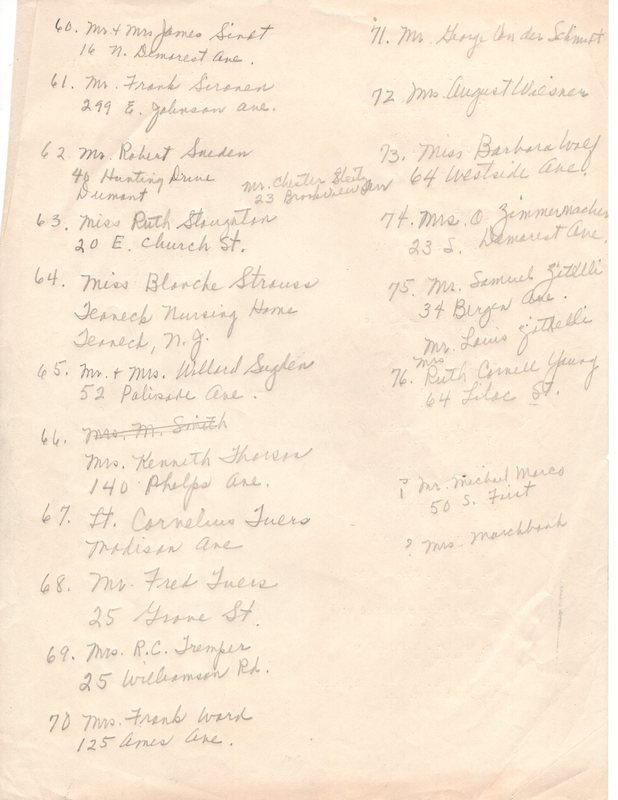 60. Mr + Mrs James Sindt
16 N. Demarest Ave.
61. Mr. Frank Sironen
299 E. Johnson Ave.
62 Mr. Robert Sneden
40 Hunting Drive
Dumont
Mr. Chester
23 Brookview Terr
63. Miss Ruth Stoughton
20 E. Church St.
64. Miss Blanche Strauss
Teaneck Nursing Home
Teaneck, N.J.
65. Mr. + Mrs. Willard Sugden
52 Palisade Ave.
66. Mrs. M. Smith
Mrs. Kenneth Thorson
140 Phelps Ave.
67. Lt. Cornelius Tuers
Madison Ave
68. Mr. Fred Tuers
25 Grove St.
69. Mrs. R.C. Tremper
25 Williamson Rd.
70 Mrs. Frank Ward
125 Ames Ave.
71. Mr. George Von der Schmidt
72 Mrs. August Wiesner
73. Miss Barbara Wolf
64 Westside Ave.
74. Mrs. O. Zimmermacher
23 S. Demarest Ave.
75. Mr. Samuel Zitelli
34 Bergen Ave.
Mr. Louis
76. Mrs Ruth Cornell Young
64 Lilac St.
? Mr. Michael Marco
50 S. First
? Mrs. Marchbank